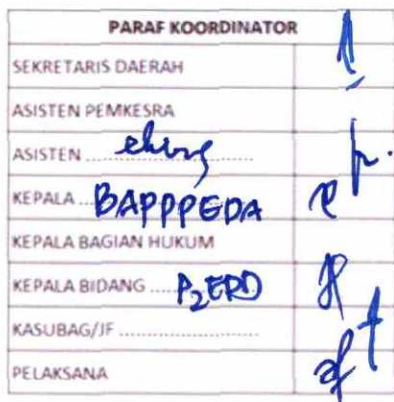 PARAF KOORDINATOR
SEKRETARIS DAERAH
ASISTEN PEMKESRA
ASISTEN ...ekbang...
KEPALA ...BAPPPEDA
KEPALA BAGIAN HUKUM
KEPALA BIDANG ...P2EPD
KASUBAG/JF ...
PELAKSANA